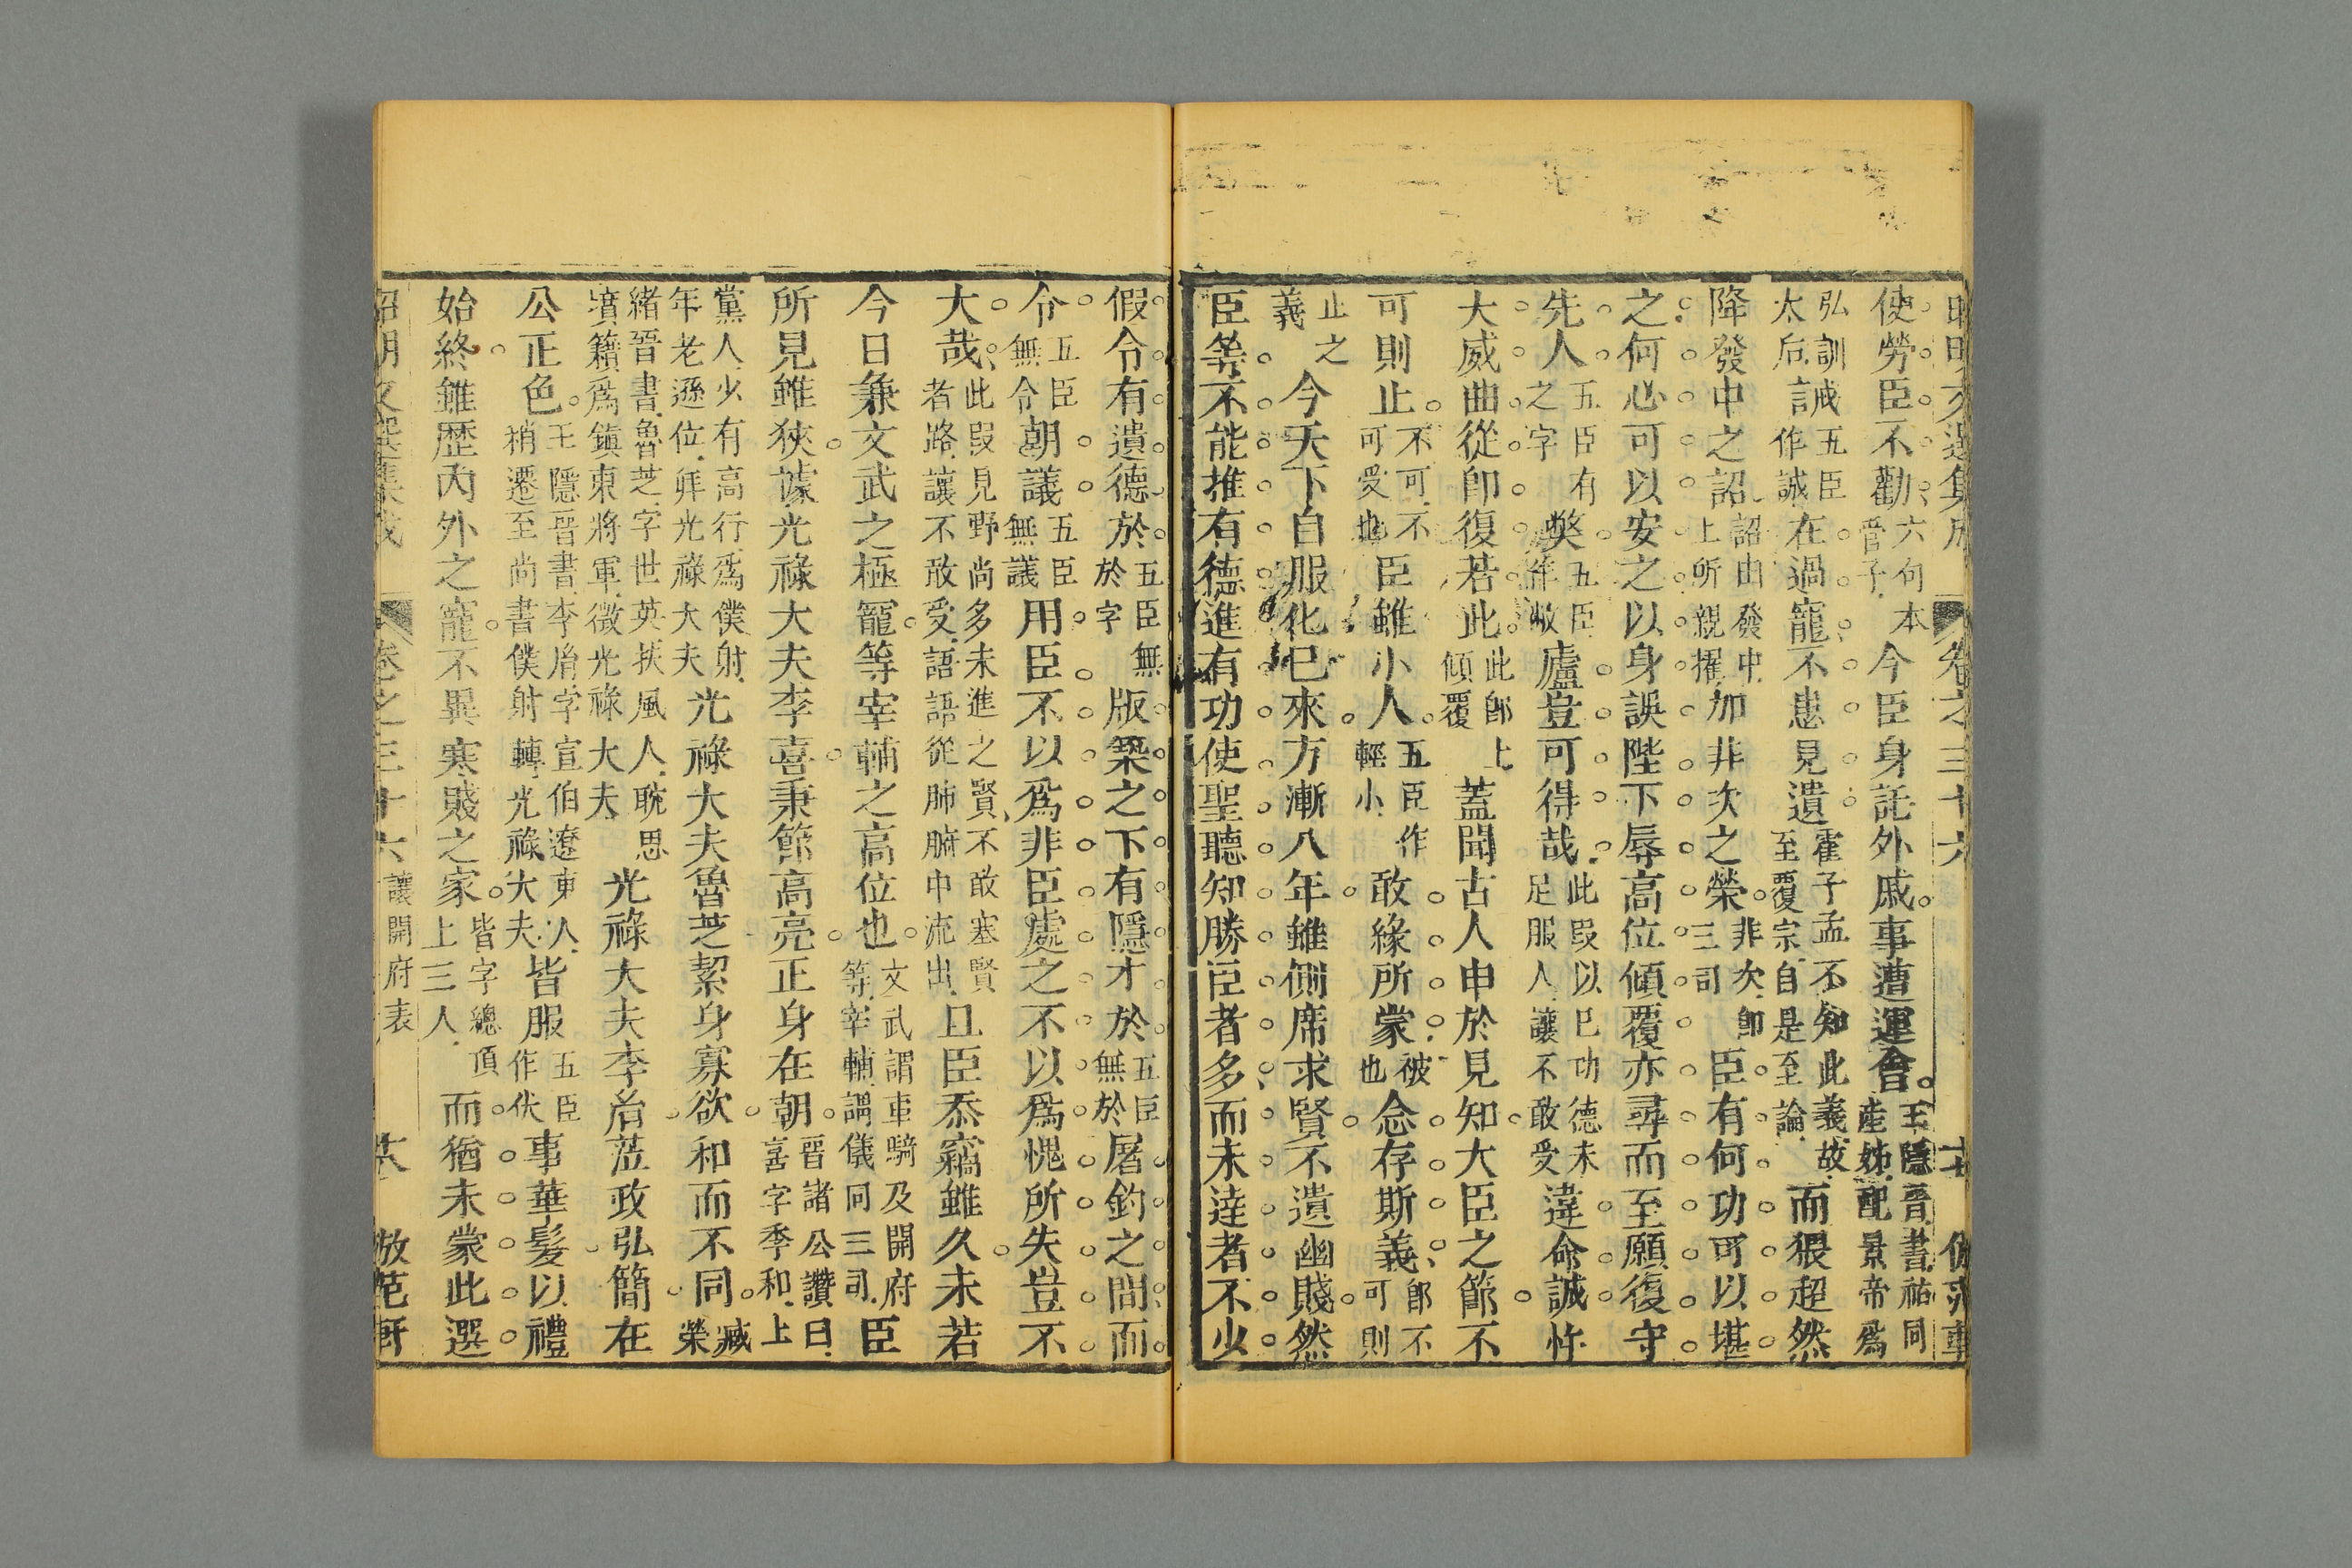 昭明文選集成 卷之三十六 十七
使勞臣不勸六句本管子今臣身託外戚事遭運會王隱晉書祜同產姊配景帝爲
弘訓太后誡五臣作誠在過寵不患見遺霍子孟不知此義故至覆宗自是至論而猥超然
降發中之詔詔由發中上所親擢加非次之榮非次卽三司臣有何功可以堪
之何心可以安之以身誤陛下辱高位傾覆亦尋而至願復守
先人五臣有之字獘五臣作敝廬豈可得哉此叚以巳功德未足服人讓不敢受違命誠忤
大威曲從卽復若此此卽上傾覆蓋聞古人申於見知大臣之節不
可則止不可不可受也臣雖小人五臣作輕小敢緣所蒙被也念存斯義卽不可則
止之義今天下自服化巳來方漸八年雖側席求賢不遺幽賤然
臣等不能推有德進有功使聖聽知勝臣者多而未達者不少
假令有遺德於五臣無於字版築之下有隱才於五臣無於屠釣之間而
令五臣無令朝議五臣無議用臣不以爲非臣處之不以爲愧所失豈不
大哉此叚見野尚多未進之賢不敢塞賢者路讓不敢受語語從肺腑中流出且臣忝竊雖久未若
今日兼文武之極寵等宰輔之高位也文武謂車騎及開府等宰輔謂儀同三司臣
所見雖狹據光祿大夫李喜秉節高亮正身在朝晉諸公讚曰喜字季和上
黨人少有高行爲僕射年老遜位拜光祿大夫光祿大夫魯芝絜身寡欲和而不同臧榮
緒晉書魯芝字世英扶風人耽思墳籍爲鎮東將軍徵光祿大夫光祿大夫李胤蒞政弘簡在
公正色王隱晉書李胤字宣伯遼東人稍遷至尚書僕射轉光祿大夫皆服五臣作伏事華髮以禮
始終雖歷內外之寵不異寒賤之家皆字總頂上三人而猶未蒙此選
昭明文選集成 卷之三十六 讓開府表 倣范軒